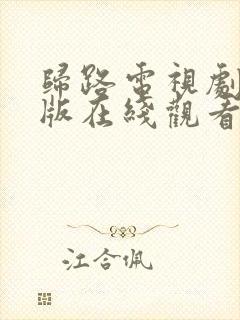 歸路電視劇
版在綫觀看
江合佩